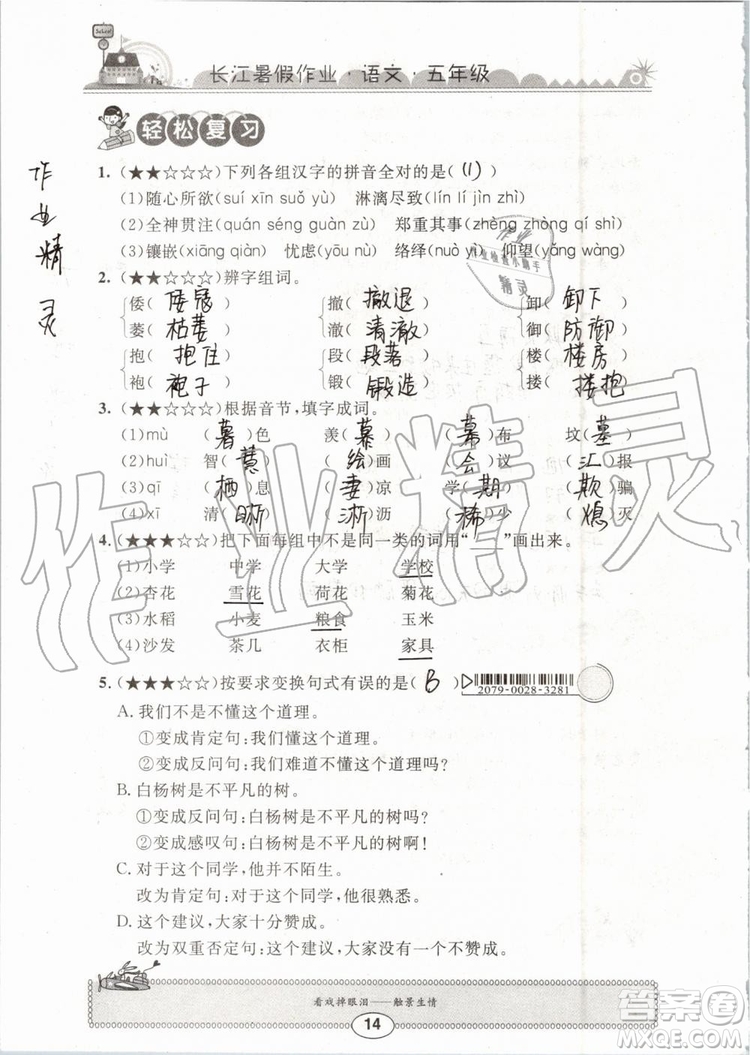 School
长江暑假作业·语文·五年级
轻松复习
作业精灵
1. (★★☆☆☆)下列各组汉字的拼音全对的是( (1) )
(1)随心所欲(suí xīn suǒ yù) 淋漓尽致(lín lí jìn zhì)
(2)全神贯注(quán séng guàn zhù) 郑重其事(zhèng zhòng qí shì)
(3)镶嵌(xiāng qiàn) 忧虑(yōu nǜ) 络绎(nuò yì) 仰望(yǎng wàng)
2. (★★☆☆☆)辨字组词。
倭( 倭寇 ) 撤( 撤退 ) 卸( 卸下 )
萎( 枯萎 ) 澈( 清澈 ) 御( 防御 )
抱( 抱住 ) 段( 段落 ) 楼( 楼房 )
袍( 袍子 ) 锻( 锻造 ) 搂( 搂抱 )
3. (★★☆☆☆)根据音节,填字成词。
(1)mù ( 暮 )色 羡( 慕 ) ( 幕 )布 坟( 墓 )
(2)huì 智( 慧 ) ( 绘 )画 ( 会 )议 ( 汇 )报
(3)qī ( 栖 )息 ( 凄 )凉 学( 期 ) ( 欺 )骗
(4)xī 清( 晰 ) ( 淅 )沥 ( 稀 )少 ( 熄 )灭
4. (★★★☆☆)把下面每组中不是同一类的词用“__”画出来。
(1)小学 中学 大学 学校
(2)杏花 雪花 荷花 菊花
(3)水稻 小麦 粮食 玉米
(4)沙发 茶几 衣柜 家具
5. (★★★☆☆)按要求变换句式有误的是( B )
2079-0028-3281
A. 我们不是不懂这个道理。
①变成肯定句:我们懂这个道理。
②变成反问句:我们难道不懂这个道理吗?
B. 白杨树是不平凡的树。
①变成反问句:白杨树是不平凡的树吗?
②变成感叹句:白杨树是不平凡的树啊!
C. 对于这个同学,他并不陌生。
改为肯定句:对于这个同学,他很熟悉。
D. 这个建议,大家十分赞成。
改为双重否定句:这个建议,大家没有一个不赞成。
看戏掉眼泪——触景生情
14
作业精灵
答案圈
MXQE.COM